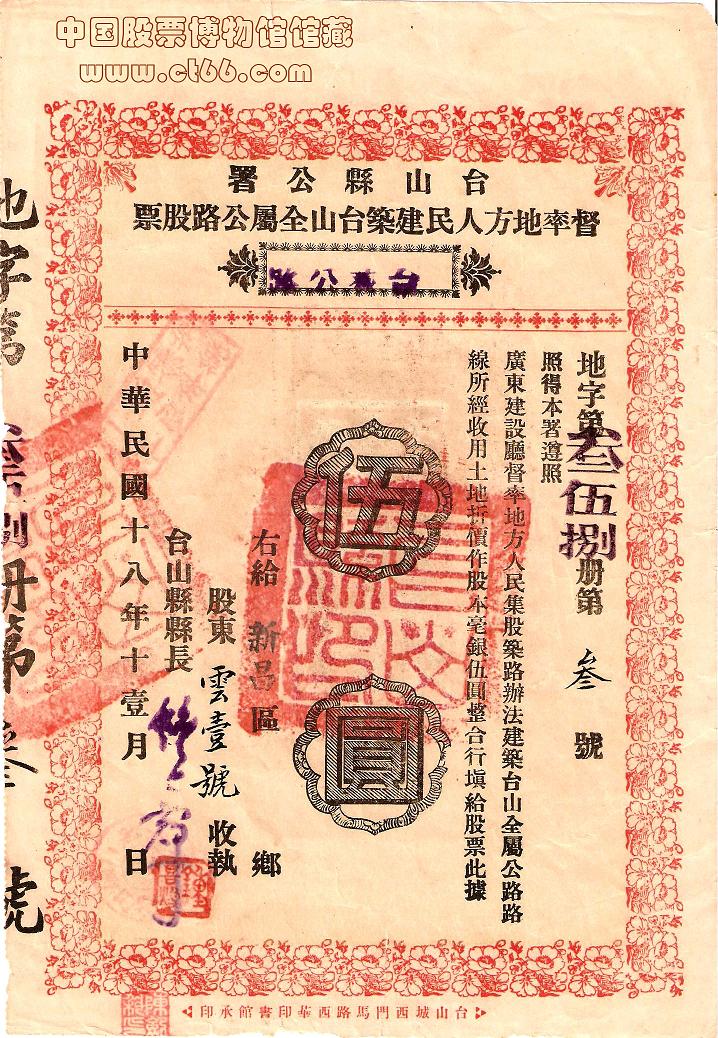 中国股票博物馆馆藏
www.ct66.com
台山縣公署
督率地方人民建築台山全屬公路股票
公路
地字第叁伍捌册第叁號
照得本署遵照
廣東建設廳督率地方人民集股築路辦法建築台山全屬公路路
線所經收用土地折價作股本毫銀伍圓整合行塡給股票此據
伍圓
右給新昌區鄉
股東雲壹號收執
台山縣縣長
中華民國十八年十壹月日
地字第
捌册第叁號
台山城西門馬路西華印書館承印